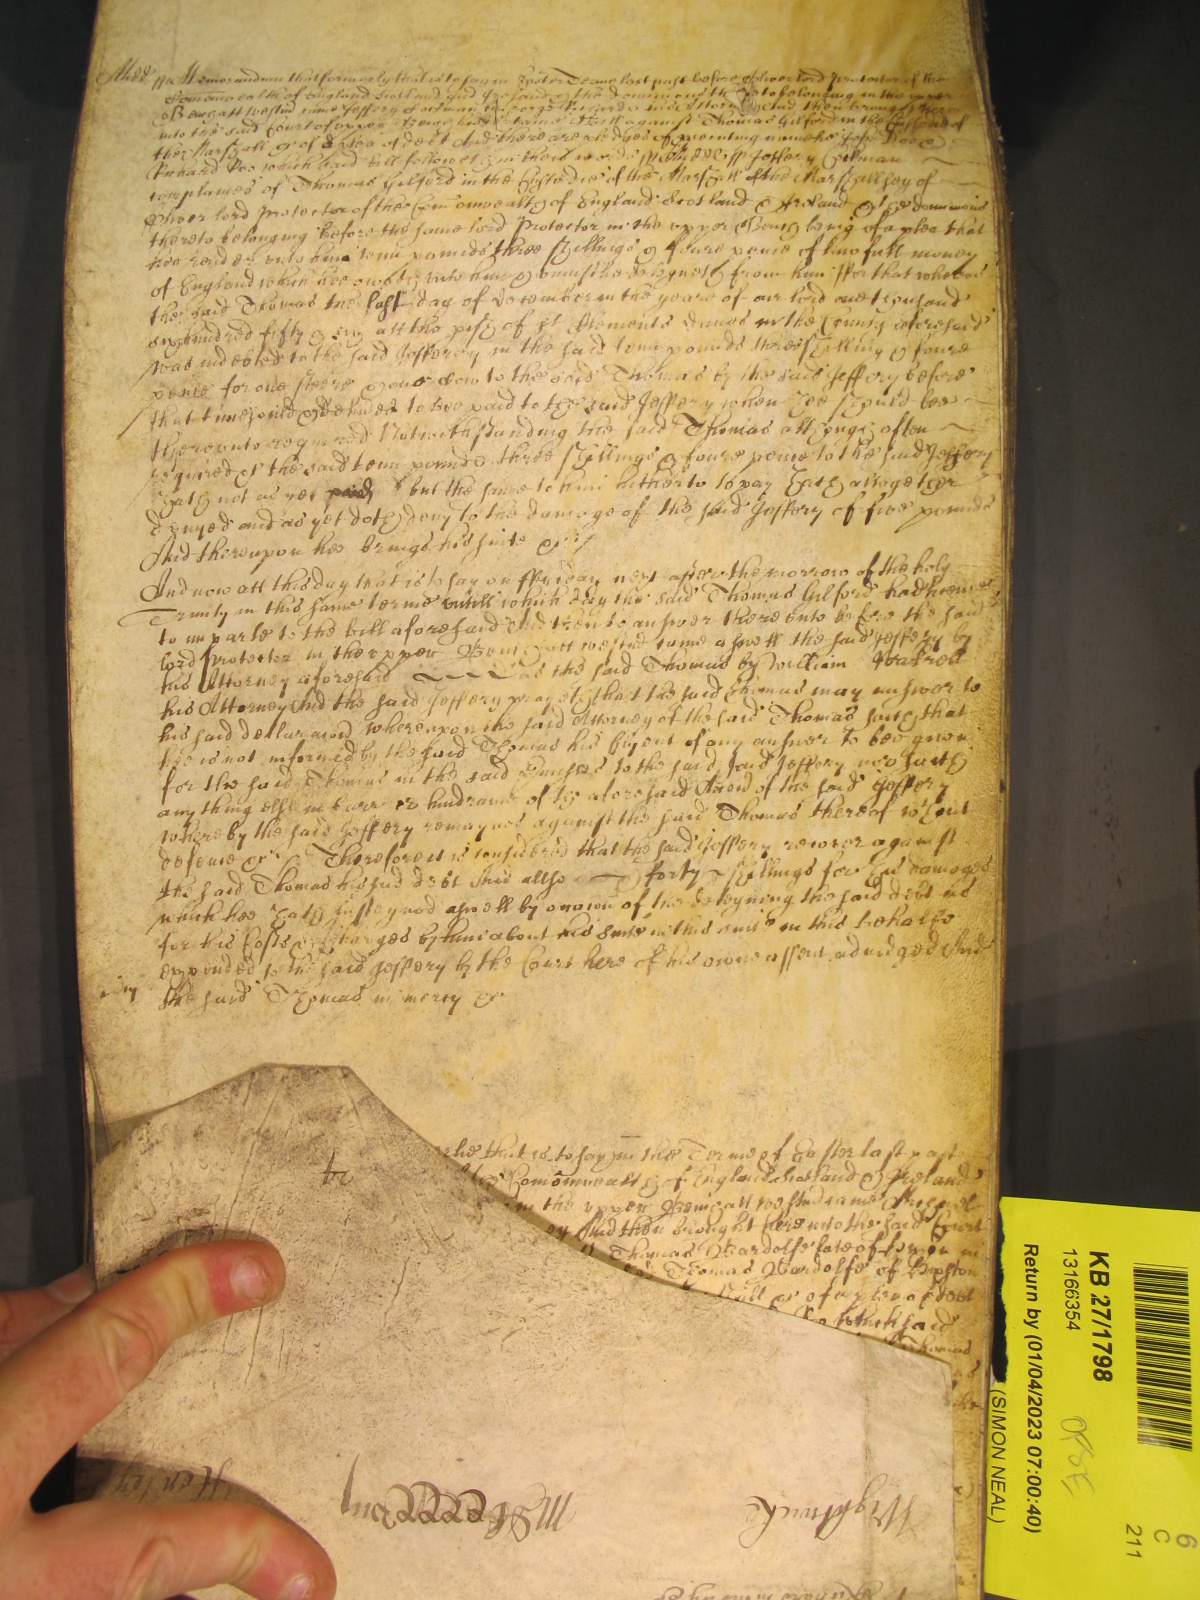 Midd ss Memorandum that formerly that is to say in Easter Terme last past before Oliver lord Protector of the
Comonwealth of England Scotland and Ireland & the dominions thereto belonging in the upper
Bench att Westm came Jeffery Coleman by George his Attorney And then brought here
into the said Court of upper Bench his certaine Bill against Thomas Gilford in the Custodie of
the Marshall &c of a plea of debt And there are pledges of prosecuting namely John Doo &
Richard Roo which said bill followeth in these words Midd ss Jeffery Coleman
complaines of Thomas Gilford in the Custodie of the Marshall of the Marshallsey of
Oliver lord Protector of the Comonwealth of England Scotland & Ireland & the dominions
thereto belonging before the same lord Protector in the upper Bench being of a plea that
hee render unto him tenn pounds three shillings & foure pence of lawfull money
of England which hee oweth unto him & uniustlie deteyneth from him For that whereas
the said Thomas the last day of December in the yeare of our lord one thousand
six hundred fifty & six att the pish of St Clements Danes in the County aforesaid
was indebted to the said Jefferey in the said tenn pounds three shillings & foure
pence for one steere & one Cow to the said Thomas by the said Jeffery before
that time sould & delivered to bee paid to the said Jeffery when hee should bee
thereunto required Notwithstanding the said Thomas although often
required &c the said tenn pounds three shillings & foure pence to the said Jeffery
hath not as yet paid but the same to him hitherto to pay hath altogether
denyed and as yet doth deny to the damage of the said Jeffery of five pounds
And thereupon hee brings his suite &c
And now att this day that is to say on Fryday next after the morrow of the holy
Trinity in this same terme untill which day the said Thomas Gilford had licence
to imparle to the bill aforesaid And then to answer thereunto before the said
lord Protector in the upper Bench att Westm came aswell the said Jeffery by
his Attorney aforesaid as the said Thomas by William
his Attorney And the said Jeffery prayeth that the said Thomas may answer to
his said declaracon Whereupon the said Attorney of the said Thomas saith that
hee is not informed by the said Thomas his Clyent of any answer to bee given
for the said Thomas in the said to the said Jeffery nor saith
any thing else in barr or hindrance of the aforesaid Accon of the said Jeffery
Whereby the said Jeffery remaynes against the said Thomas thereof without
defence &c Therefore it is considered that the said Jeffery recover against
the said Thomas his said debt And allso forty shillings for his damages
which hee hath susteyned aswell by occasion of the deteyning the said debt as
for his Costs & Charges by him about his suite in this behalfe
expended to the said Jeffery by the Court here of his owne assent adiudged And
mcy the said Thomas in mercy &c
that is to say in the Terme of Easter last past
the Comonwealth of England Scotland & Ireland
in the upper Bench att Westm came
And then brought here into the said Court
Thomas Bardolfe late of in
Thomas Bardolfe of
bill &c of a plea of debt
which said
Thomas
Wightwick
Henley
KB 27/1798
13166354
Return by (01/04/2023 07:00:40)
(SIMON NEAL)
6
C
211